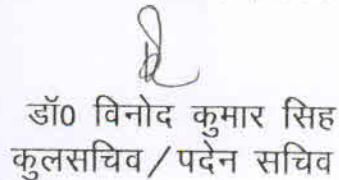 डॉ0 विनोद कुमार सिंह
कुलसचिव/पदेन सचिव